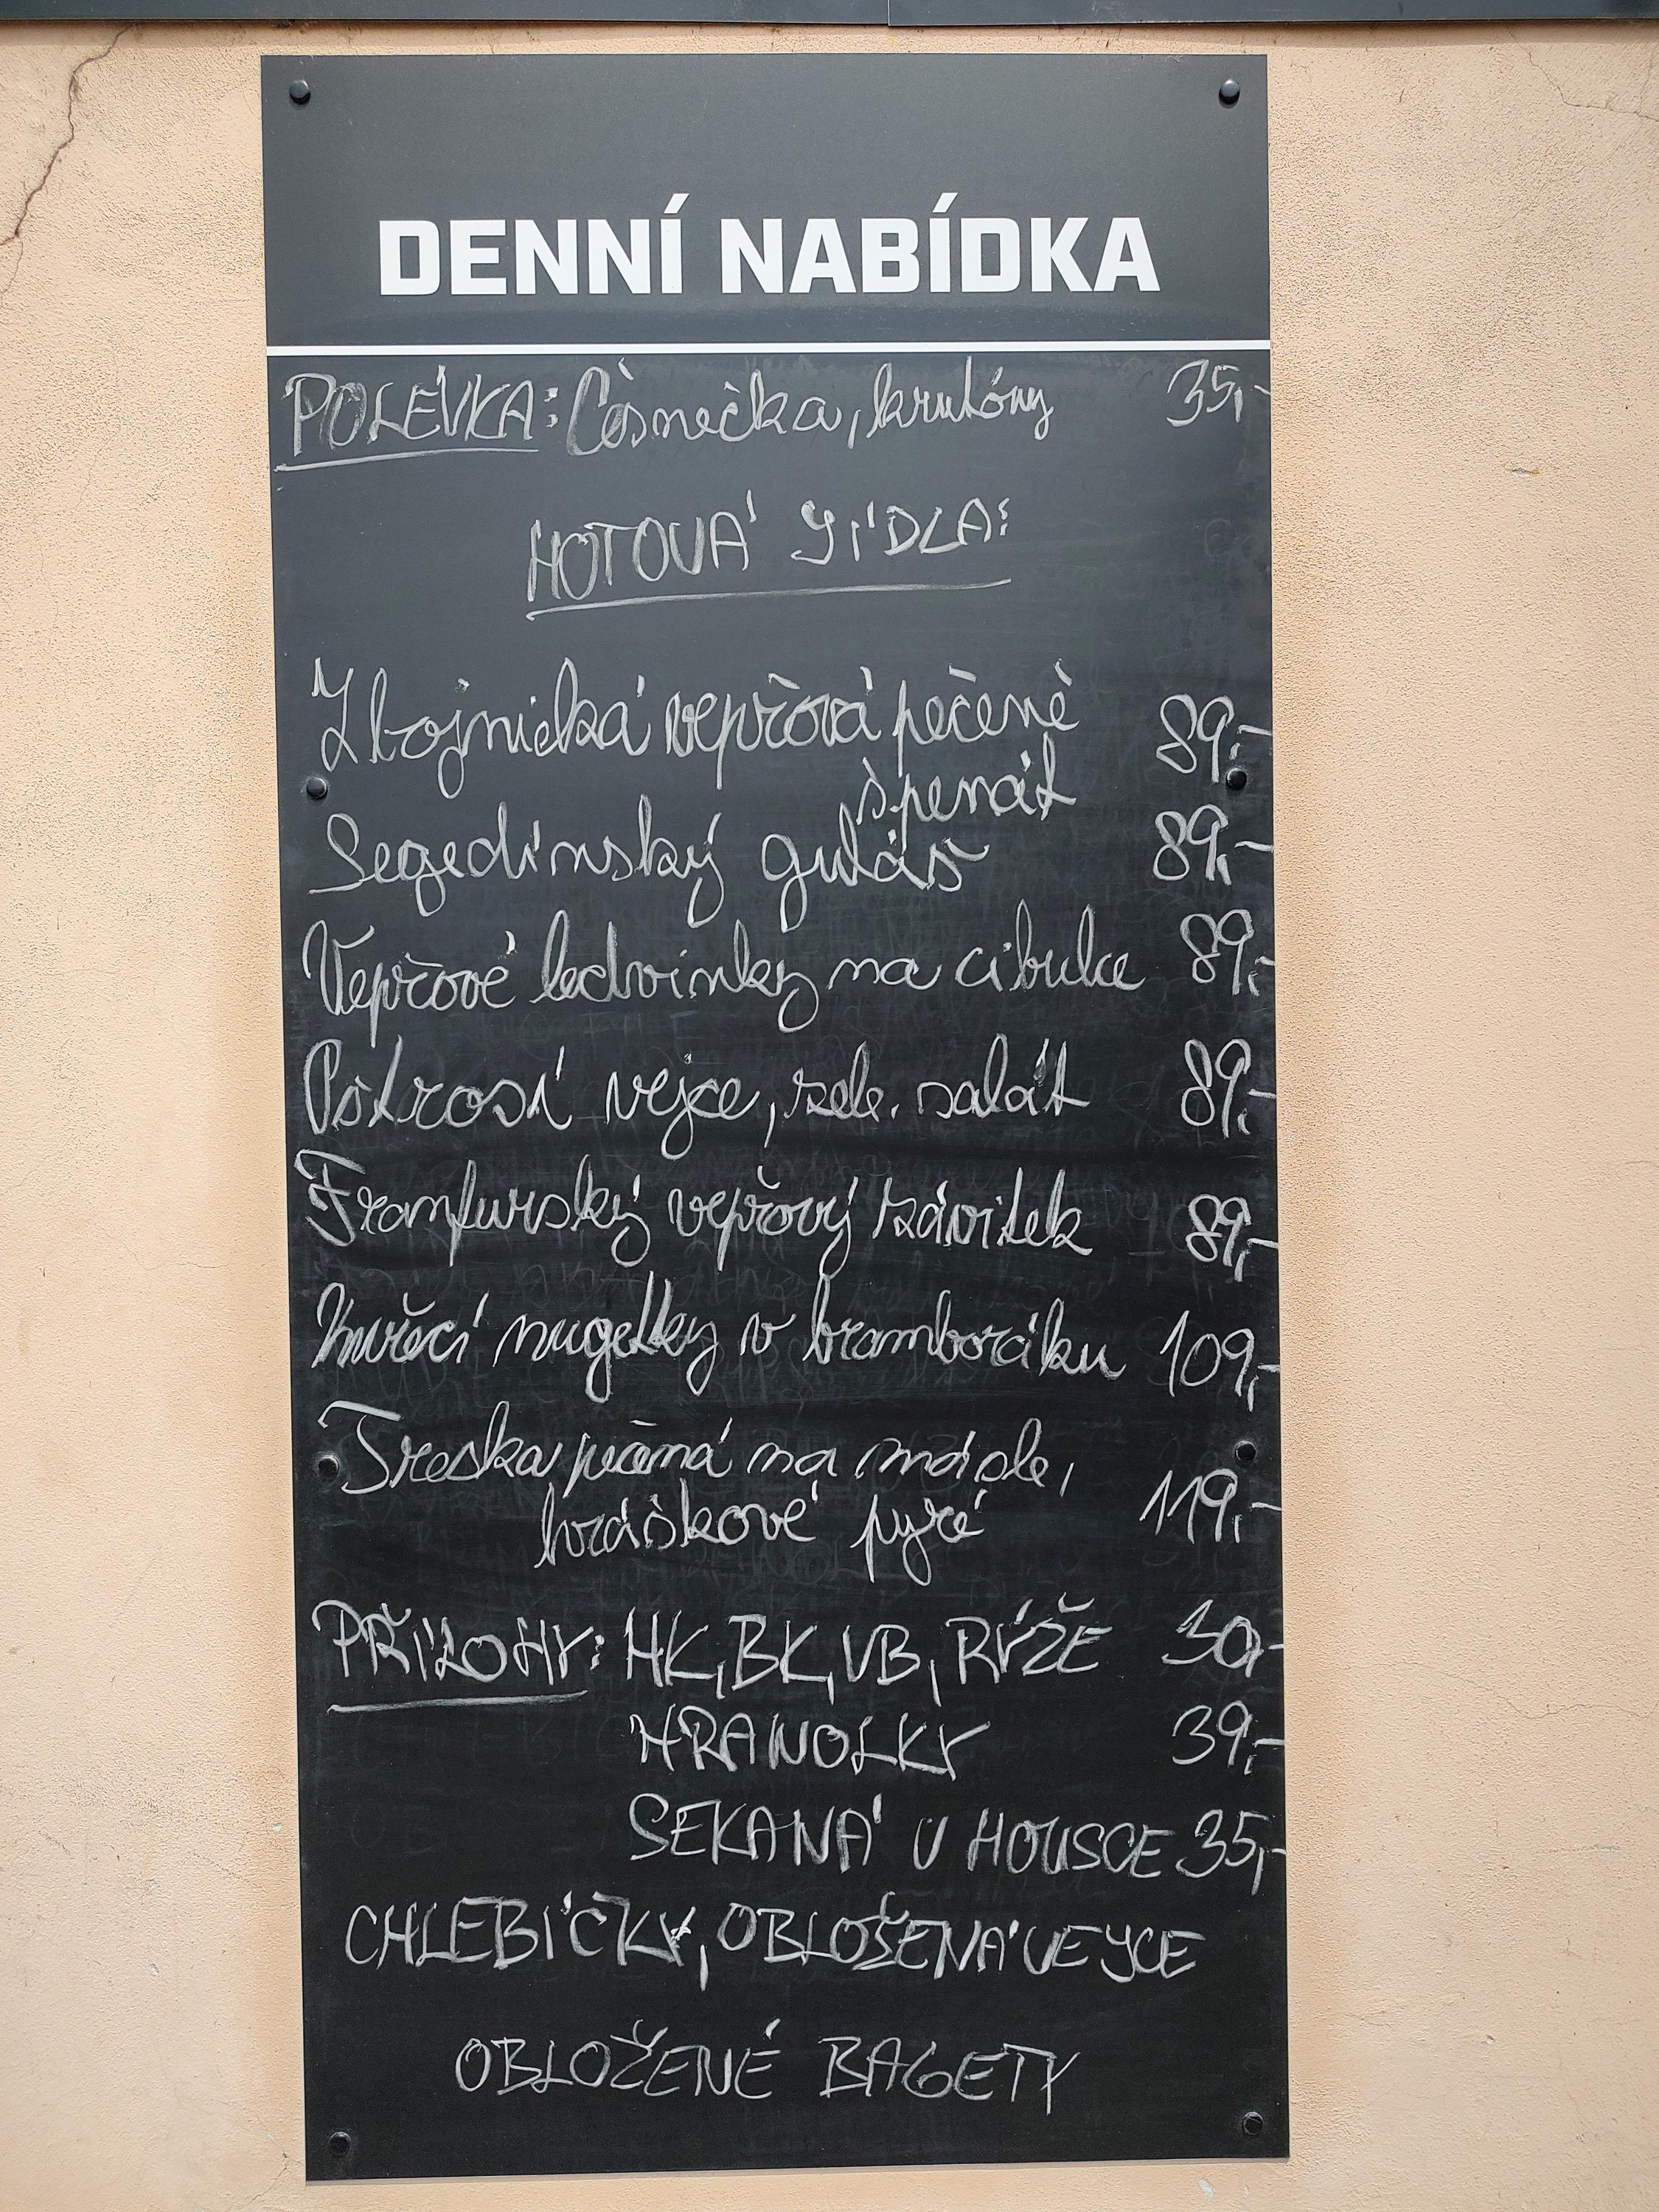 DENNÍ NABÍDKA
POLÉVKA: Česnečka, krutóny 35,-
HOTOVÁ JÍDLA:
Zbojnická vepřová pečeně 89,-
špenát
Segedínský guláš 89,-
Vepřové ledvinky na cibulce 89,-
Pštrosí vejce, zele. salát 89,-
Franfurský vepřový závitek 89,-
Kuřecí nugetky v bramboráku 109,-
Treska pečená na másle,
hráškové pyré 119,-
PŘÍLOHY: HK, BK, VB, RÝŽE 30,-
HRANOLKY 39,-
SEKANÁ V HOUSCE 35,-
CHLEBÍČKY, OBLOŽENÁ VEJCE
OBLOŽENÉ BAGETY